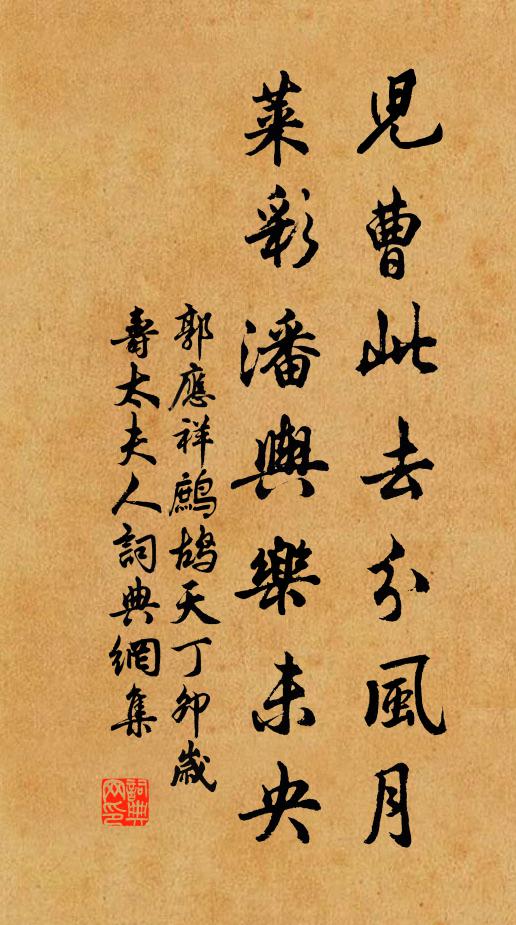 兒曹此去分風月
萊彩潘輿樂未央
郭應祥鷓鴣天丁卯歲
壽太夫人詞典網集
詞典
网印